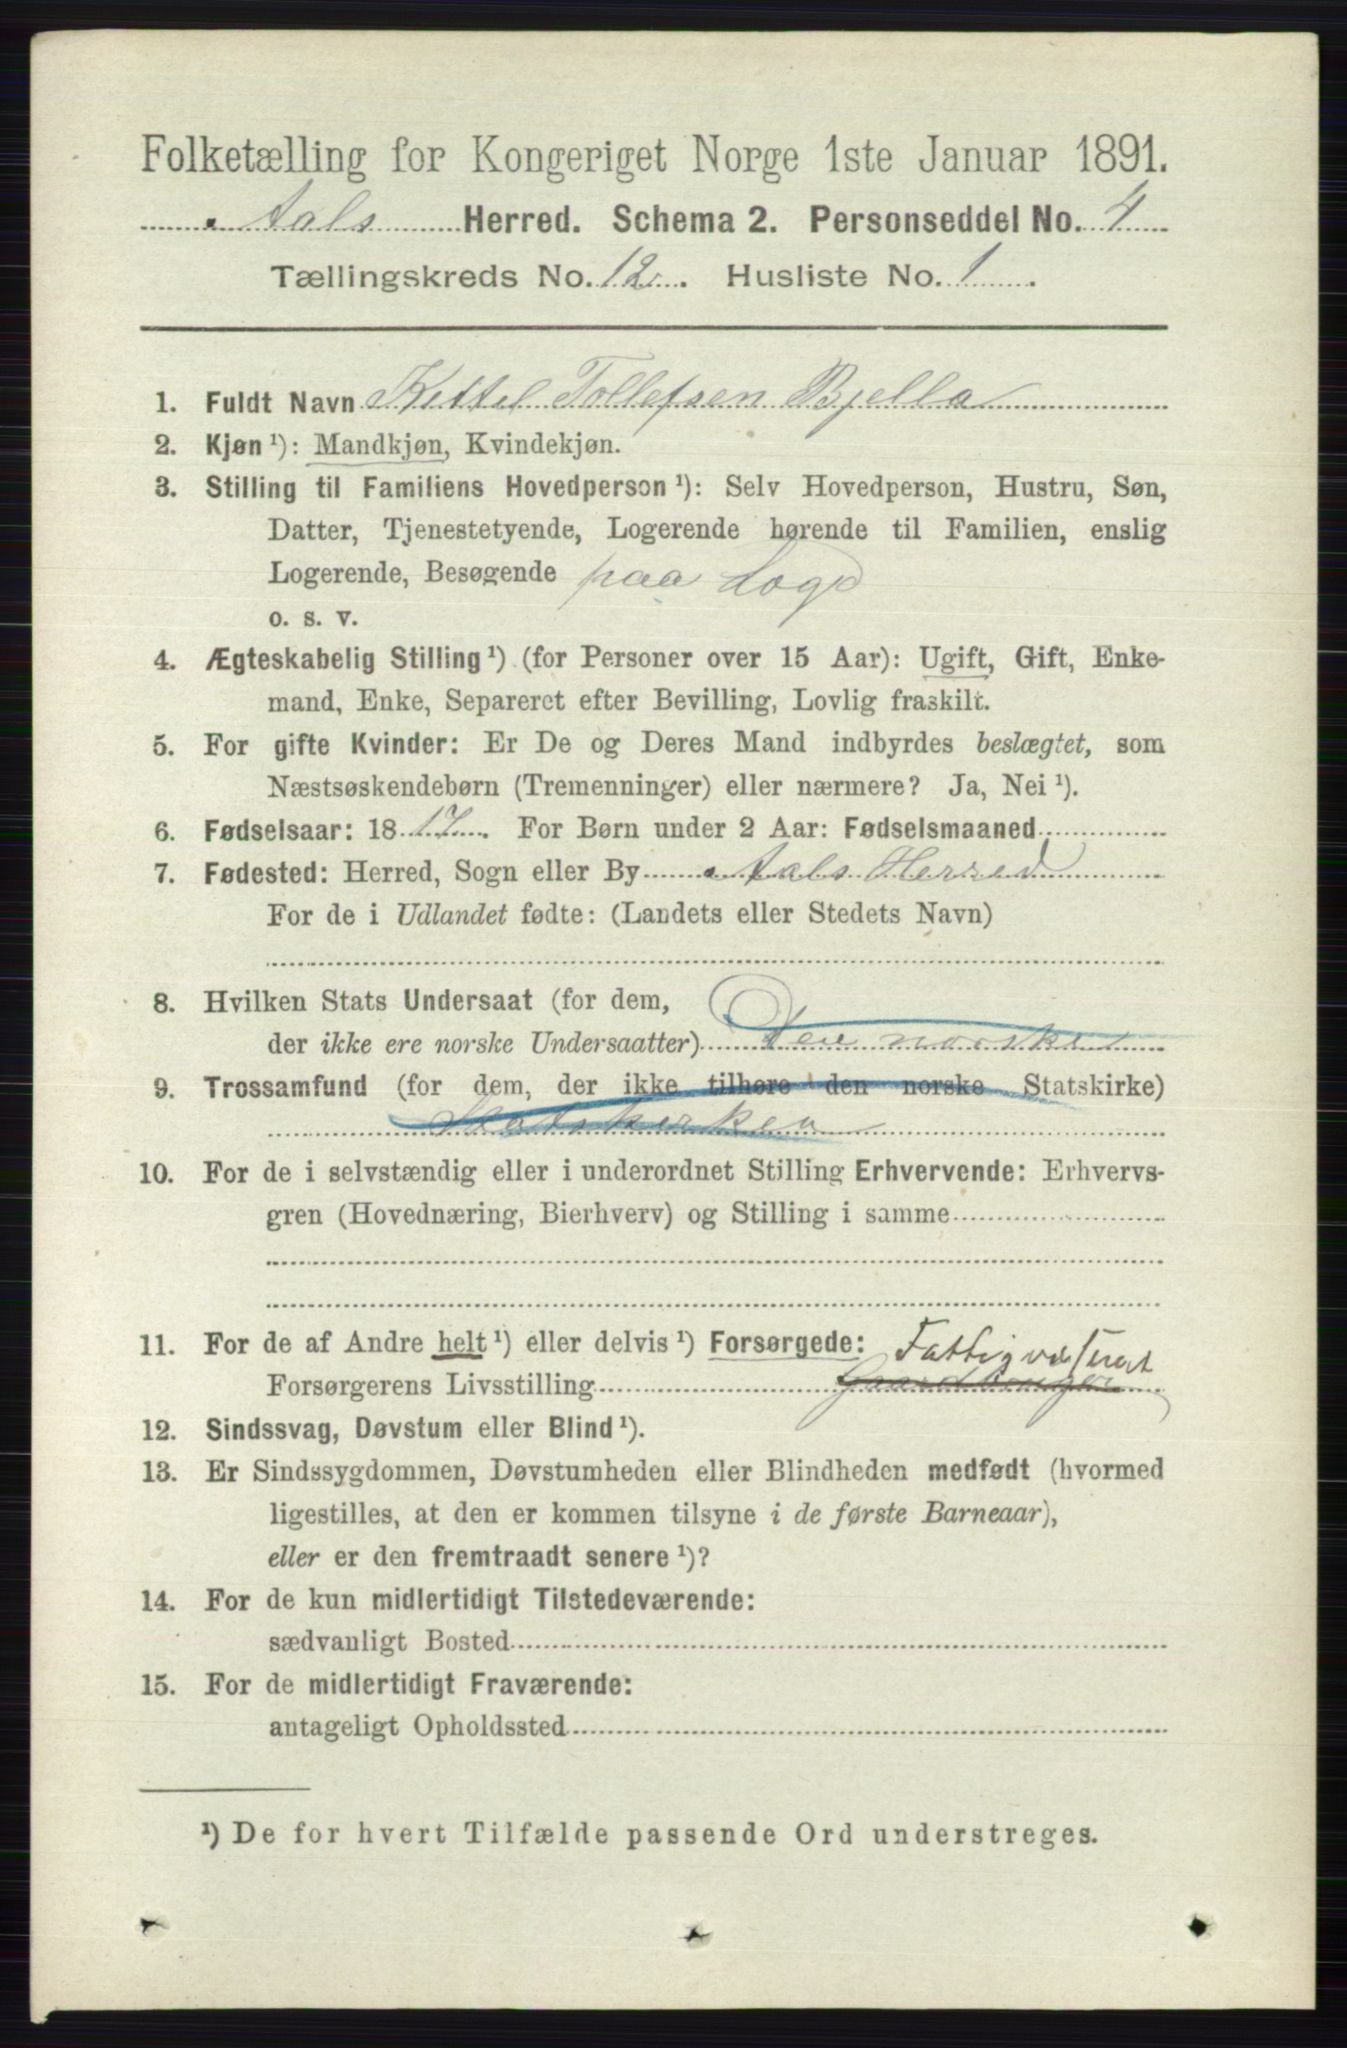 Folketælling for Kongeriget Norge 1ste Januar 1891.
Aals Herred. Schema 2. Personseddel No. 4
Tællingskreds No. 12. Husliste No. 1.
1. Fuldt Navn Kettel Tollefsen Bjella
2. Kjøn ¹): Mandkjøn, Kvindekjøn.
3. Stilling til Familiens Hovedperson ¹): Selv Hovedperson, Hustru, Søn,
Datter, Tjenestetyende, Logerende hørende til Familien, enslig
Logerende, Besøgende paa Logd
o. s. v.
4. Ægteskabelig Stilling ¹) (for Personer over 15 Aar): Ugift, Gift, Enke-
mand, Enke, Separeret efter Bevilling, Lovlig fraskilt.
5. For gifte Kvinder: Er De og Deres Mand indbyrdes beslægtet, som
Næstsøskendebørn (Tremenninger) eller nærmere? Ja, Nei ¹).
6. Fødselsaar: 1817. For Børn under 2 Aar: Fødselsmaaned
7. Fødested: Herred, Sogn eller By Aals Herred
For de i Udlandet fødte: (Landets eller Stedets Navn)
8. Hvilken Stats Undersaat (for dem,
der ikke ere norske Undersaatter) Den norske
9. Trossamfund (for dem, der ikke tilhøre den norske Statskirke)
Statskirken
10. For de i selvstændig eller i underordnet Stilling Erhvervende: Erhvervs-
gren (Hovednæring, Bierhverv) og Stilling i samme
11. For de af Andre helt ¹) eller delvis ¹) Forsørgede: Fattigvæsenet
Forsørgerens Livsstilling Gaardbruger
12. Sindssvag, Døvstum eller Blind ¹).
13. Er Sindssygdommen, Døvstumheden eller Blindheden medfødt (hvormed
ligestilles, at den er kommen tilsyne i de første Barneaar),
eller er den fremtraadt senere ¹)?
14. For de kun midlertidigt Tilstedeværende:
sædvanligt Bosted
15. For de midlertidigt Fraværende:
antageligt Opholdssted
¹) De for hvert Tilfælde passende Ord understreges.